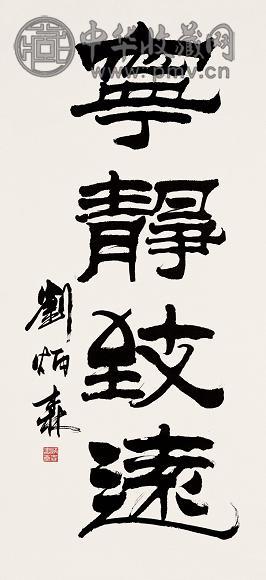 中华收藏网
www.pmv.cn
寧靜致遠
劉炳森